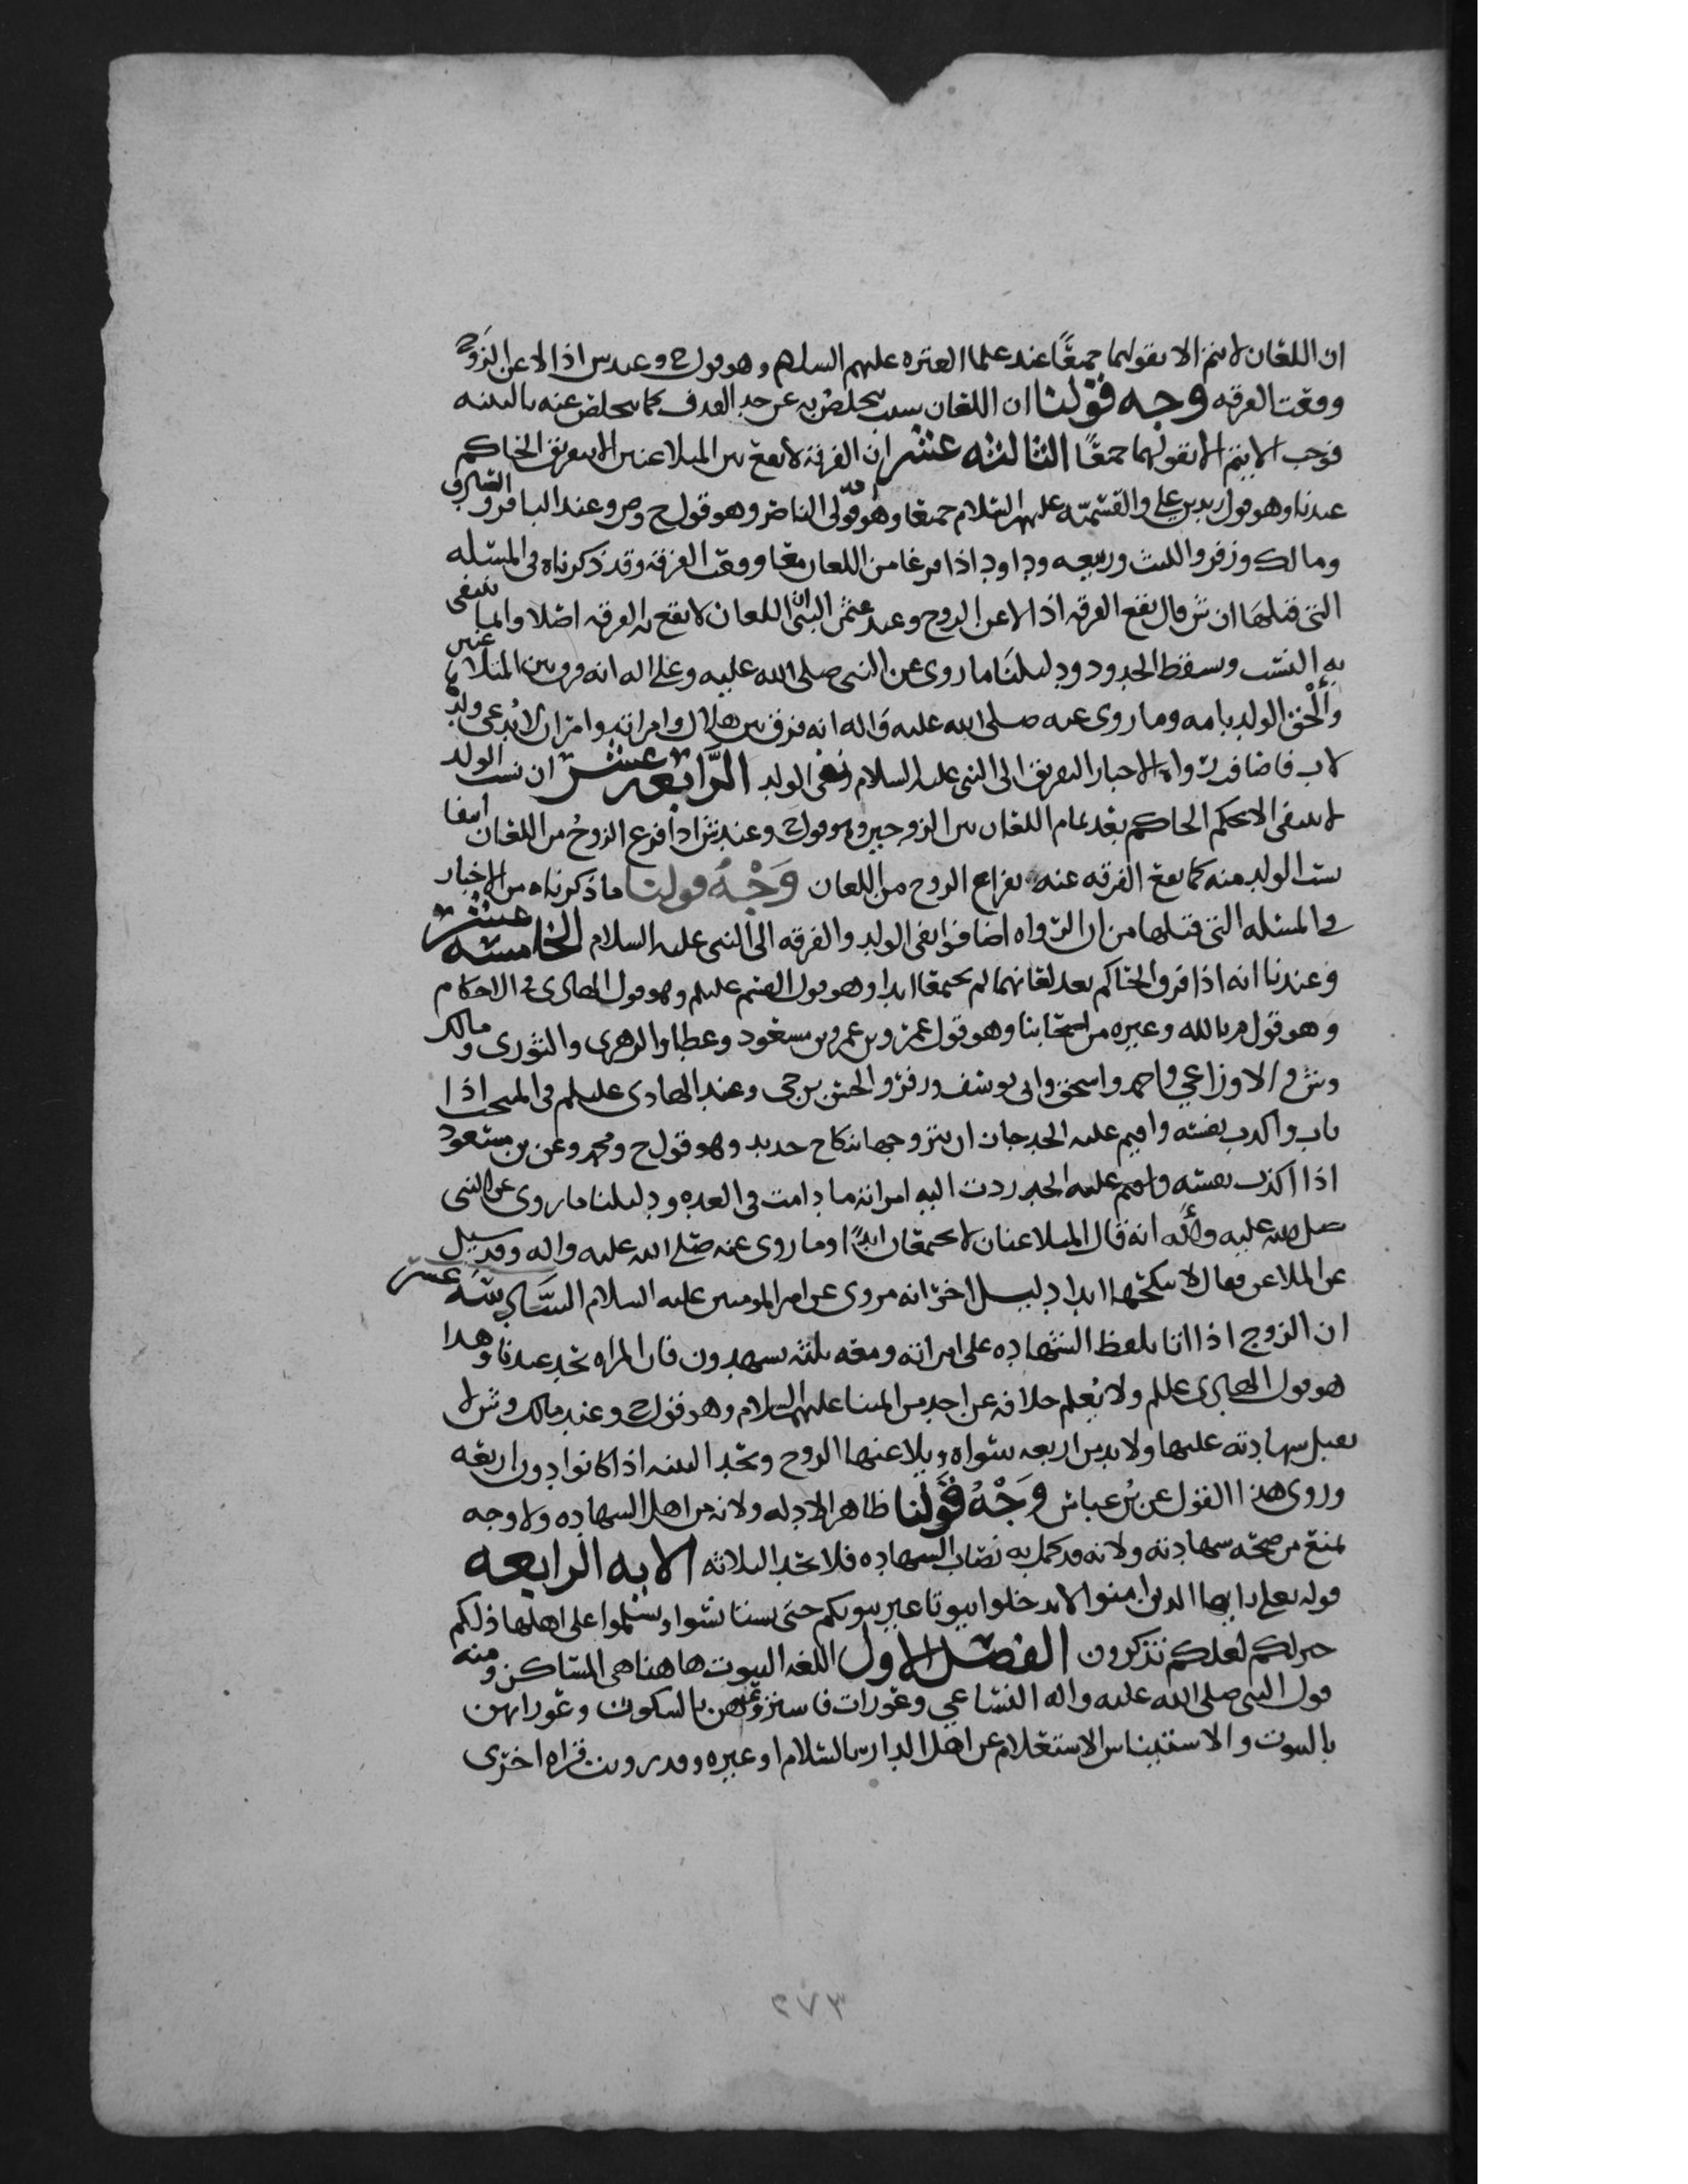 ان اللعان لا يتم الا بقولهما جميعًا عند علما العتره عليهم السلام وهو قول ح وعند س اذا لاعن الزوج
وقعت الفرقه وجه قولنا ان اللعان سبب يتخلص به عن حد القذف كما يتخلص عنه بالبينه
فوجب الا يتم الا بقولهما جمعًا الثالثه عشر ان الفرقه لا تقع بين المتلاعنين الا بتفريق الحاكم
عندنا وهو قول زيد بن علي والقسميه عليهم السلام جميعا وهو قولى الناصر وهو قول ح وص وعند الباقر والصادق
ومالك وزفر والليث وربيعه وداود اذا فرغا من اللعان معا وقعت الفرقه وقد ذكرناه في المسئله
التي قبلها ان ش قال تقع الفرقه اذا لاعن الزوج وعند عثمن البتى اللعان لا تقع به الفرقه اصلا وانما ينتفى
به النسب ويسقط الحد ودليلنا ما روى عن النبى صلى الله عليه وعلى اله انه فرق بين المتلاعنين
وألحق الولد بامه وما روى عنه صلى الله عليه واله انه فرق بين هلال وامراته وامر ان لا يُدعى ولدها
لاب فاضافت رواه الاخبار التفريق الى النبى عليه السلام ونفى الولد الرابعه عشر ان نسب الولد
لا ينتفى الا بحكم الحاكم بعد تمام اللعان بين الزوجين وهو قول ح وعند ش اذا فرغ الزوج من اللعان انتفا
نسب الولد منه كما تقع الفرقه عنه بفراغ الزوج من اللعان وَجْهُ قولنا ما ذكرناه من الاخبار
في المسئله التي قبلها من ان الرواه اضافوا نفى الولد والفرقه الى النبى عليه السلام الخامسه عشر
وعندنا انه اذا فرق الحاكم بعد لعانهما لم يجتمعا ابدا وهو قول القسم عليلم وهو قول الهادى في الاحكام
وهو قول م بالله وغيره من اصحابنا وهو قول عمر وبن عمر وبن مسعود وعطا والزهرى والثورى ومالك
وش والاوزاعي واحمد واسحق وابى يوسف وزفر والحسن بن حى وعند الهادى عليلم في المنتخب اذا
تاب واكذب نفسه واقيم عليه الحد جاز ان يتزوجها بنكاح جديد وهو قول ح ومحمد وعن بن مسعود
اذا اكذب نفسه واقيم عليه الحد ردت اليه امراته ما دامت في العده ودليلنا ما روى عن النبى
صلى الله عليه وآله انه قال المتلاعنان لا يجتمعان ابدًا وما روى عنه صلى الله عليه واله وقد سيل
عن الملاعن فقال لا ينكحها ابدا دليل اخر انه مروى عن امير المومنين عليه السلام السَّادسه عشر
ان الزوج اذا اتا بلفظ الشهاده على امراته ومعه ثلثه يشهدون فان المراه تحد عندنا وهذا
هو قول الهادى عليلم ولا يُعلم خلافه عن احد من ايمتنا عليهم السلام وهو قول ح وعند مالك وش لا
تقبل شهادته عليها ولا بد من اربعه سواه ويلاعنها الزوج وتحد البينه اذا كانوا دون اربعه
وروى هذا القول عن بن عباس وَجْهُ قَوْلنا ظاهر الادله ولانه من اهل الشهاده ولا وجه
يمنع من صحه شهادته ولانه قد كمل به نصاب الشهاده فلا تحد الثلاثه الايه الرابعه
قوله تعلى يا ايها الذين امنوا لا تدخلوا بيوتا غير بيوتكم حتى تستانسوا وتسلموا على اهلها ذلكم
خير لكم لعلكم تذكرون الفصل الاول اللغه البيوت هاهنا هى المساكن ومنه
قول النبى صلى الله عليه واله النسا عي وعورات فاستروا عيهن بالسكوت وعوراتهن
بالبيوت والاستيناس الاستعلام عن اهل الدار بالسلام او غيره وقد رويت قراه اخرى
٣٧٢